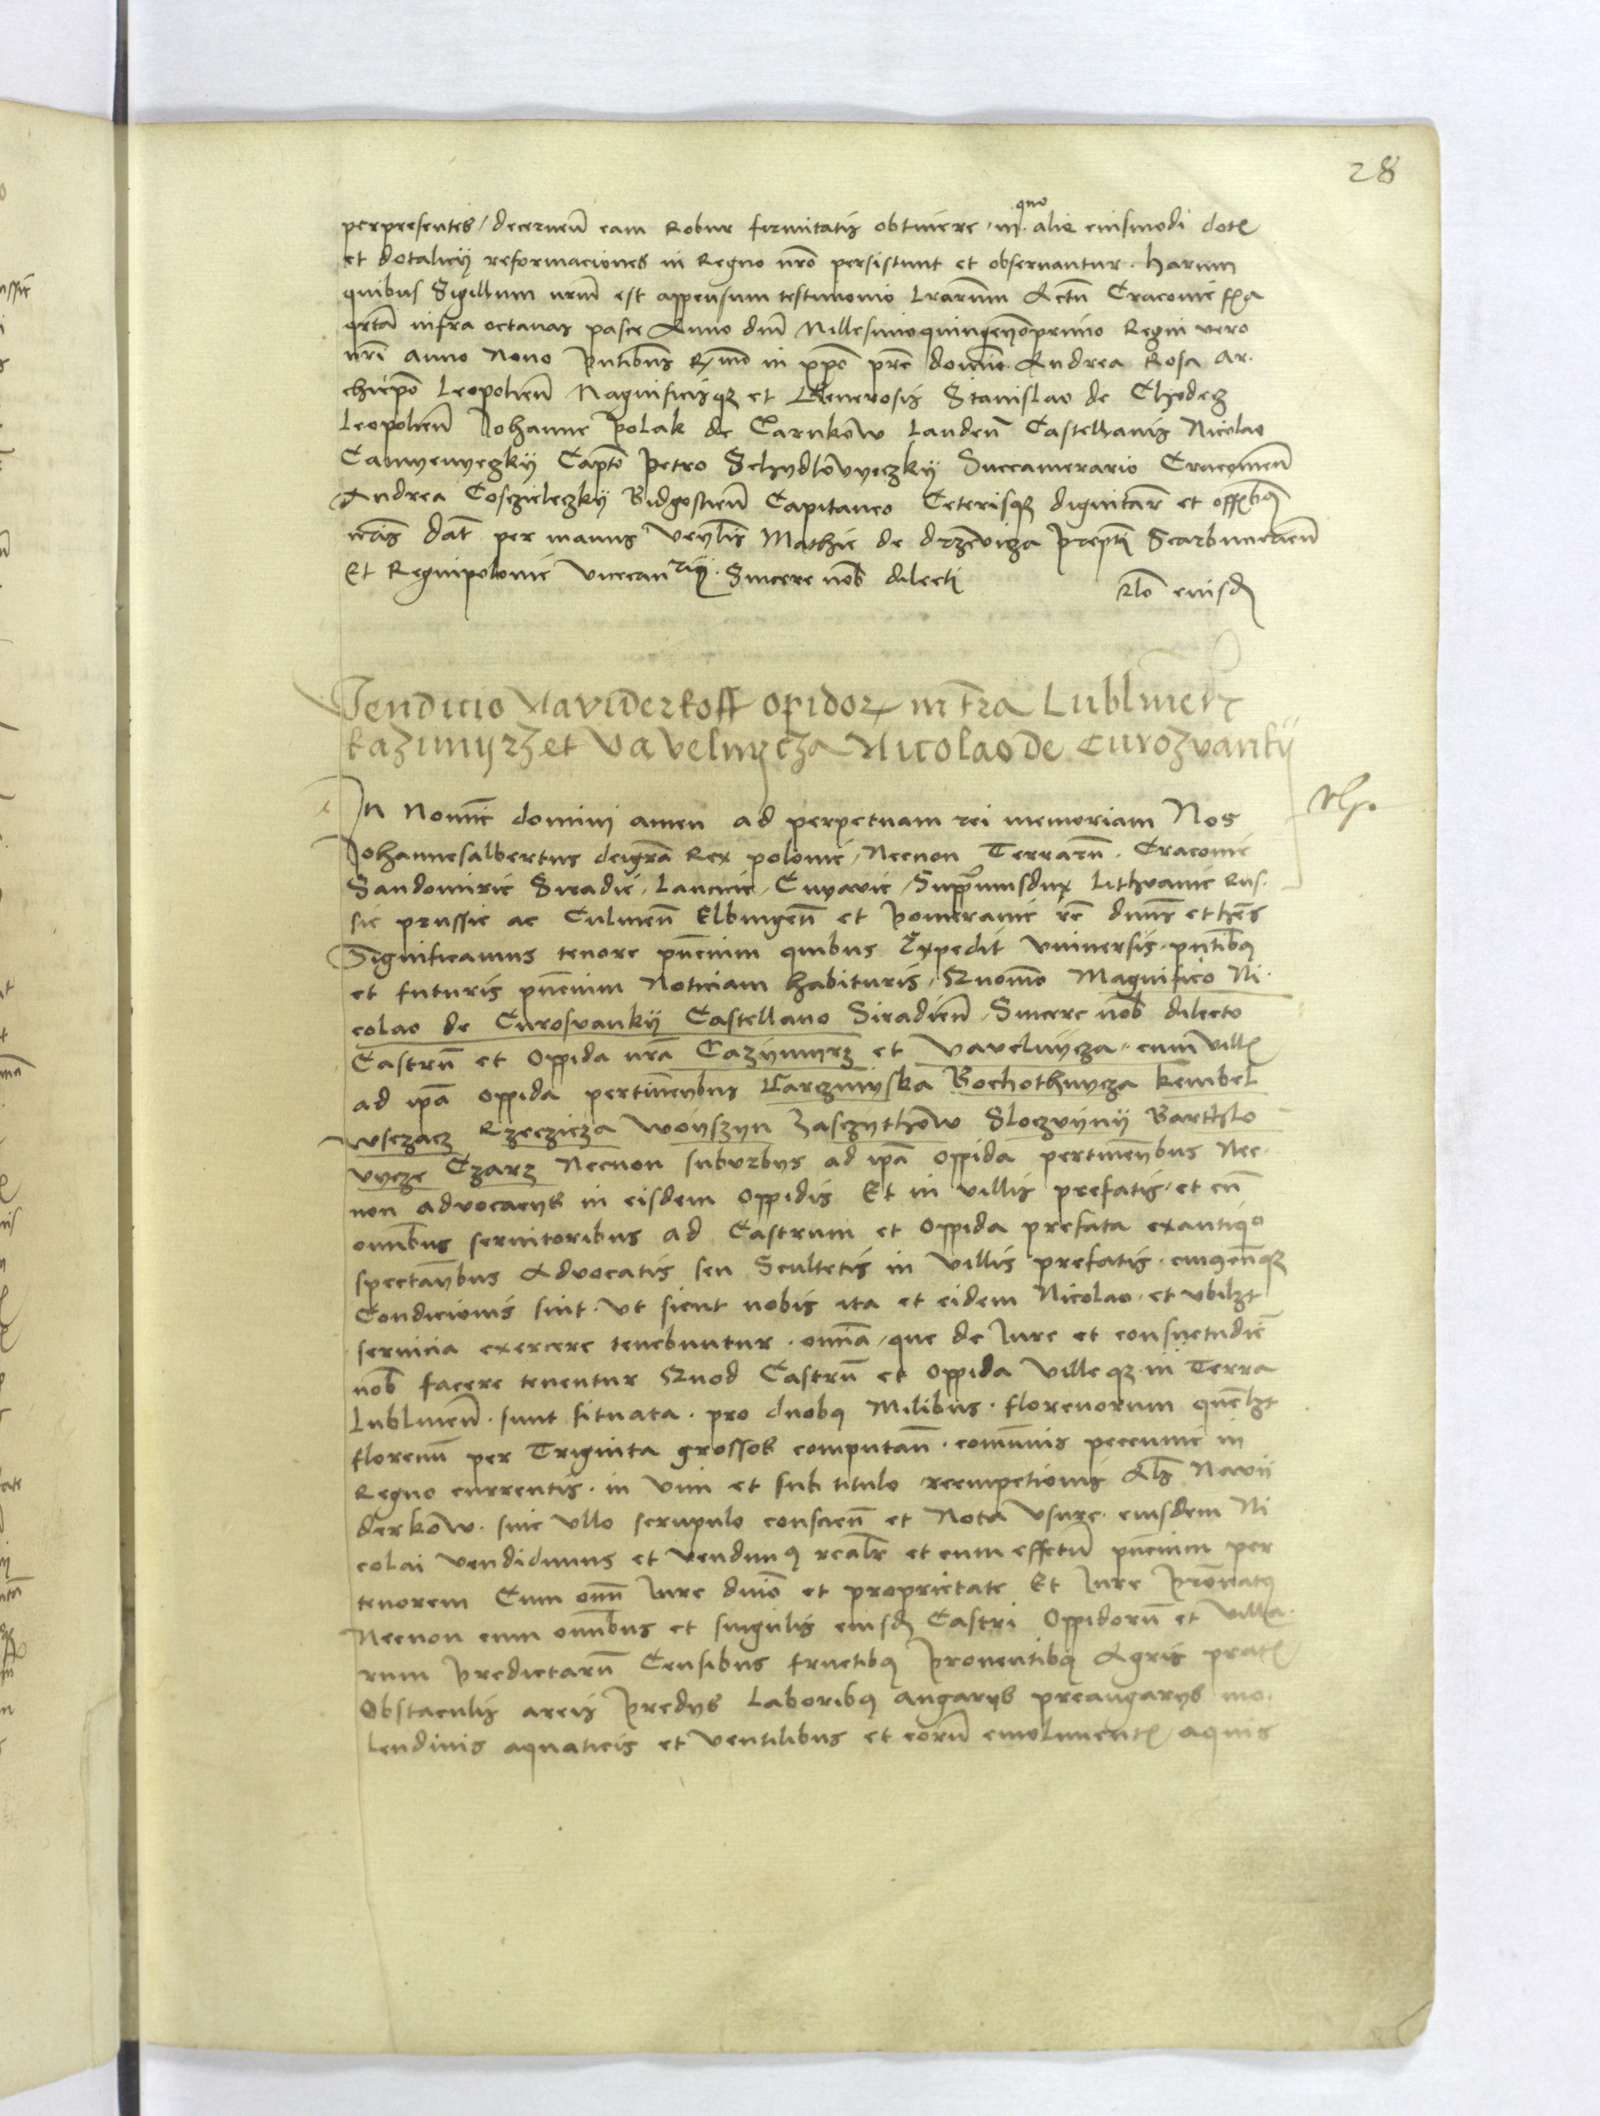 28
perpresentes / decernen̄ eam Robur firmitatis obtinere / in quo alie eiusmodi dot
et dotalicij reformaciones in Regno nr̄o persistunt et observantur. harum
quibus Sigillum nrm̄ est appensum testimonio Lrarum̄ Actū Cracovie fra
qrta infra octavas pasce Anno dnī Millesimoquingenoprimo Regni vero
nrī anno Nono pntibus R mo in xpo pre domine Andrea Rosa Ar.
chiepo Leopolien̄ Magnificisqz et Generosis Stanislao de Chodecz
Leopolien̄ Johanne polak de Carnkow Landen̄ Castellanis Nicolao
Camyenyeczkij Capto petro Schydlovyeczkij Succamerario Cracovien̄
Andrea Coszieleczkij Bidgostien̄ Capitaneo Ceterisqz dignitar et offbq
nris Dat per manus Venlis Mathie de drzevicza prepti Scarbimirien̄
Et Regnipolonie vicecanrij. Sincere nob dilecti
Rlo eiusd
Vendicio Naviderkoff opidor in tra Lublinen
kazimijrz et vavelnycza Nicolao de Curozvankij
In Nomine domini amen ad perpetuam rei memoriam Nos
Johannesalbertus deigra Rex polonie / Necnon Terrarū. Cracovie
Sandomirie Siradie / Lancicie / Cuyavie / Suppremusdux Lithvanie Rus.
sie prussie ac Culmen̄ Elbingen̄ et pomeranie rē dnus et hes
Significamus tenore pncium quibus Expedit vniversis. pntibq
et futuris pncium Noticiam habituris / Quomo Magnifico Ni.
colao de Curosvankij Castellano Siradien̄ / Sincere nob dilecto
Castrū et Oppida nra Cazijmyrz et vavelnijcza / cum vill
ad ipa oppida pertinenbus Carzmijska Bochothnycza kembel
wsczacz Rzeczicza Woijszyn Zasczijthow Sloczvijnij Barthlo
vycze Czarz Necnon suburbys ad ipa oppida pertinenbus Nec.
non advocacys in eisdem oppidis Et in villis prefatis / et cū
omnbus servitoribus ad Castrum et oppida prefata exantiqo
spectanbus Advocatis seu Scultetis in villis prefatis. cuiqcunqz
Condicionis sint. vt sicut nobis ita et eidem Nicolao. et vbilzt
servicia exercere tenebuntur. omia / que de Iure et consuetudie
nob facere tenentur Quod Castrū et oppida villeqz in Terra
Lublinen̄. sunt situata. pro duobq Milibus. florenorum quelzt
florenū per Triginta grossos computan̄. comunis peccunie in
Regno currentis. in vim et sub titulo reempcionis Als Navij
derkow. sine vllo scrupulo conscien̄ et Nota vsure. eiusdem Ni
colai vendidimus et vendimq realr et cum effectu pncium per
tenorem Cum omni Iure dnio et proprietate Et Iure pronatq
Necnon cum omnbus et singulis eiusd Castri Oppidorū et villa.
rum predictarū Censibus fructibq proventibq Agris prat
Obstaculis areis predys laboribq angarys preangarys mo.
lendinis aquaticis et ventilibus et eorū emolument aquis